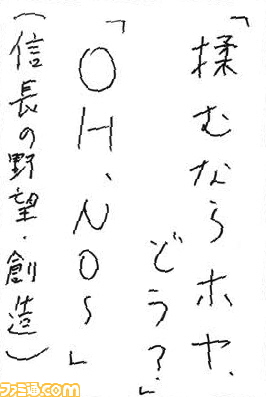 「揉むならホヤ、
どう？」
「OH、NO〜」
（信長の野望・創造）
ファミ通.com